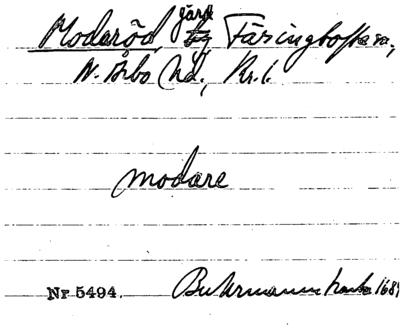 Modaröd, gård Färingtofta sn,
N. Åsbo hd., Kr. l.
modare
Nr 5494. Buhrmanns karta 168